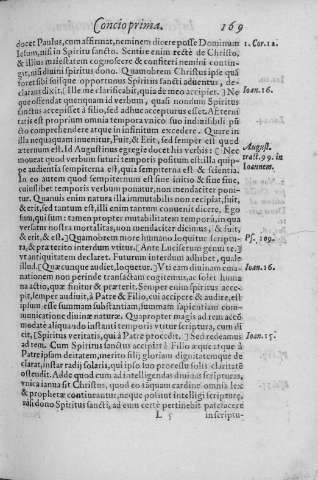 Concio prima. 169
docet Paulus, cum affirmat, neminem dicere posse Dominum 1. Cor. 12.
Iesum, nisi in Spiritu sancto. Sentire enim recte de Christo,
& illius maiestatem cognoscere & confiteri nemini contin-
git, nisi diuini spiritus dono. Quamobrem Christus ipse quã
foret sibi suisque opportunus Spiritus sancti aduentus, de-
clarans dixit. [Ille me clarificabit, quia de meo accipiet.] Ne Ioan. 16.
que offendat quenquam id verbum, quasi nondum Spiritus
sanctus accepisset à filio, sed adhuc accepturus esset. Æterni
tatis est proprium omnia tempora vnico suo indiuisibili pũ
cto comprehendere atque in infinitum excedere. Quare in
illa nequaquam inuenitur, Fuit, & Erit, sed semper est quod
æternum est. Id Augustinus egregie docet his verbis: [Nec August.
moueat quod verbum futuri temporis positum est: illa quip- tract. 99. in
pe audientia sempiterna est, quia sempiterna est & scientia. Ioannem.
In eo autem quod sempiternum est sine initio & sine fine,
cuiuslibet temporis verbum ponatur, non mendaciter poni-
tur. Quanuis enim natura illa immutabilis non recipiat, fuit,
& erit, sed tantum est, illi enim tantum conuenit dicere, Ego
sum, qui sum: tamen propter mutabilitatem temporũ, in qua
versatur nostra mortalitas, non mendaciter dicimus, & fuit,
& erit, & est.] Quamobrem more humano loquitur scriptu- Ps. 109.
ra, & præterito interdum vtitur. [Ante Luciferum genui te.] v-
ut antiquitatem declaret. Futurum interdum adhibet, quale
illud. [Quæcunque audiet, loquetur.] Vti eam diuinam com- Ioan. 16.
municationem non perinde transactam cogitemus, ac solet humana
actio, quæ finitur & præterit. Semper enim spiritus acce-
pit, semper audiuit, à Patre & Filio, cui accipere & audire, est
ipsum esse summam substantiam, summam sapientiam com-
municatione diuinæ naturæ. Quapropter magis ad rem accõ-
modatè aliquando instanti temporis vtitur scriptura, cum di
cit, [Spiritus veritatis, qui à Patre procedit.] Sed redeamus Ioan. 15.
ad rem. Cum Spiritus sanctus accipiat à Filio æque atque à
Patre ipsam deitatem, merito filij gloriam dignitatemque de
clarat, instar radij solaris, qui ipso suo processu solis claritatẽ
ostendit. Adde quod cum ad intelligendas diuinas scripturas,
vnica ianua sit Christus, quod eo tãquam cardine omnia lex
& prophetæ contineantur, neque possint intelligi scripturæ,
nisi dono Spiritus sancti, ad eum certè pertinebit patefacere
L 5 in scriptu-